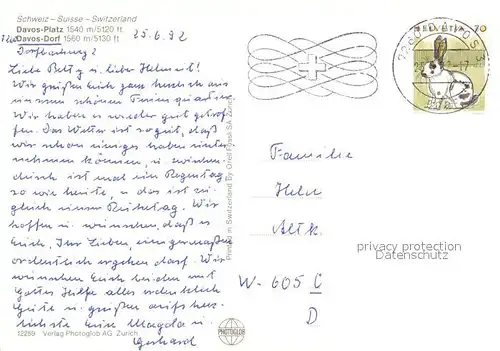 Schweiz – Suisse – Switzerland
Davos-Platz 1540 m/5120 ft
Davos-Dorf 1560 m/5130 ft
25.6.92
Dorfbachweg 2
Liebe Betty u. lieber Helmut!
Wir grüßen Euch ganz herzlich aus
unserem schönen Ferienquartier.
Wir haben es wieder gut getrof-
fen. Das Wetter ist so gut, daß
wir schon einiges haben unter-
nehmen können, u. zwischen-
durch ist mal ein Regentag
so wie heute, u. das ist zu-
gleich unser Ruhetag. Wir
hoffen u. wünschen, daß es
Euch, Ihr Lieben, einigermaßen
ordentlich ergehen darf. Wir
wünschen Euch beiden mit
Gottes Hilfe alles erdenklich
Gute u. grüßen aufs herz-
lichste Eure Magda u.
Gerhard
12289 Verlag Photoglob AG Zürich
Printed in Switzerland by Orell Füssli SA, Zürich
PHOTOGLOB
HELVETIA 70
Familie
Helm
Altk.
W-605 C
D
privacy protection
Datenschutz